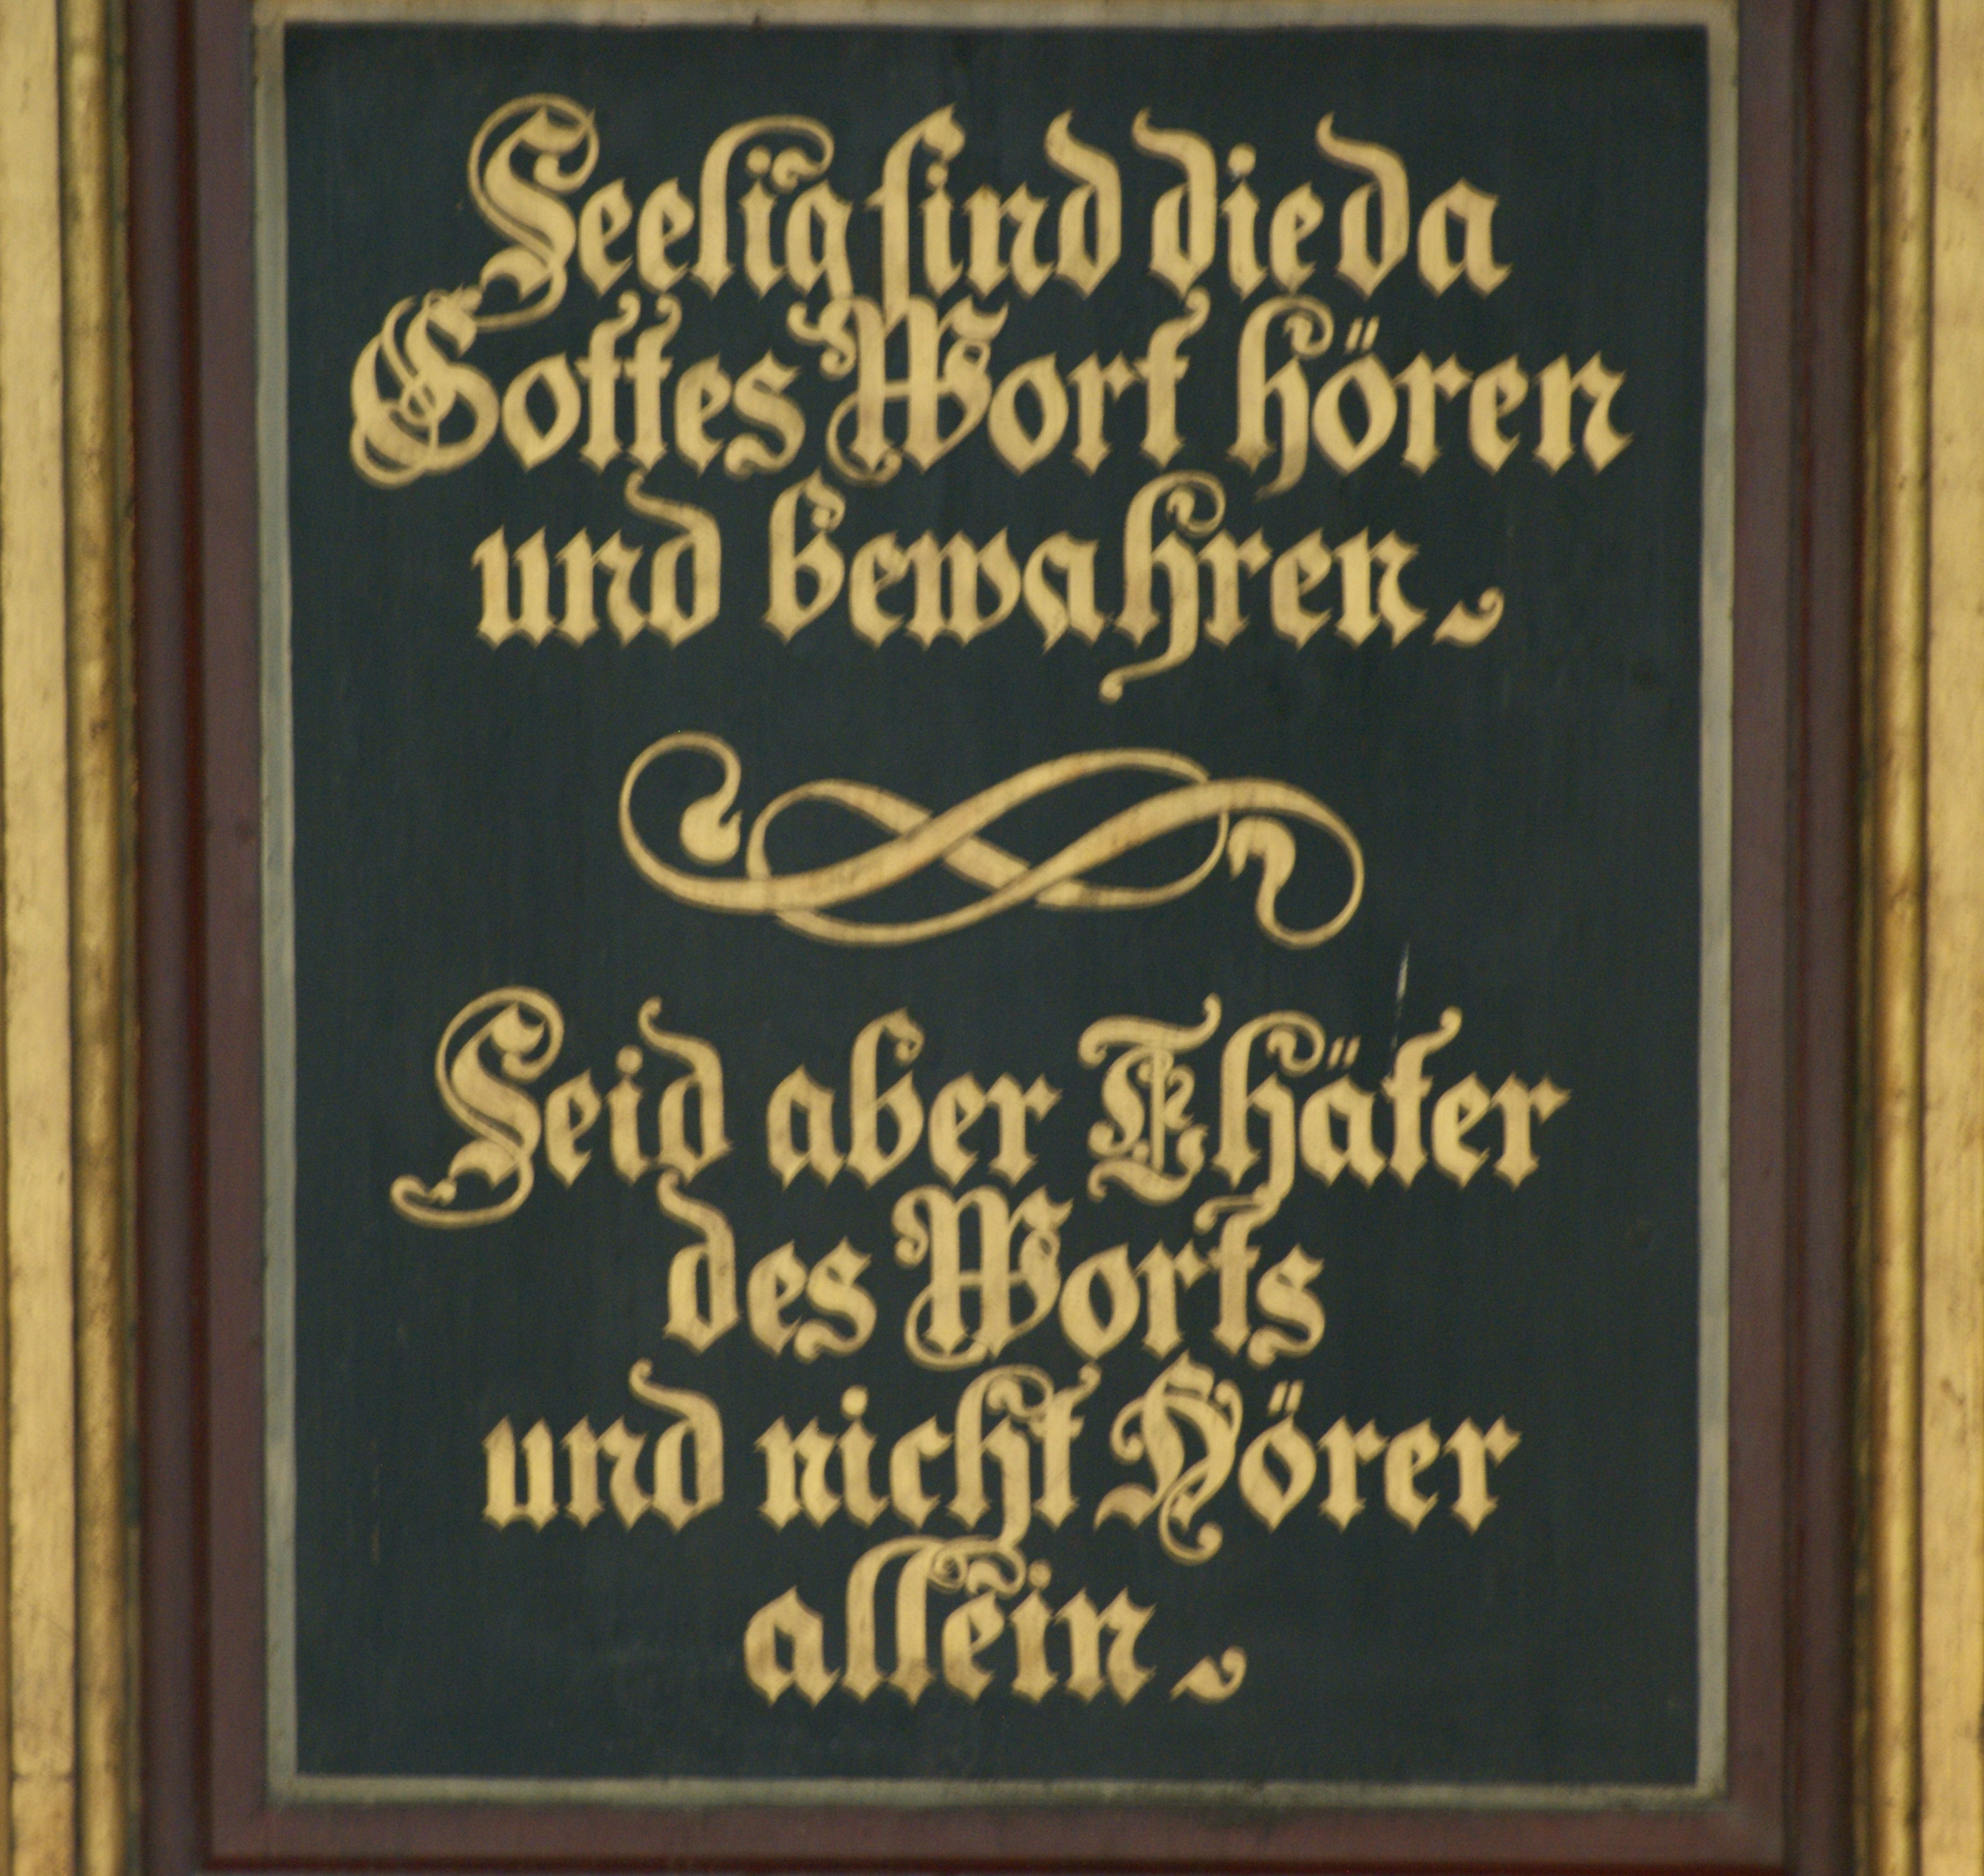 Seelig sind die da
Gottes Wort hören
und bewahren.
Seid aber Thäter
des Worts
und nicht Hörer
allein.